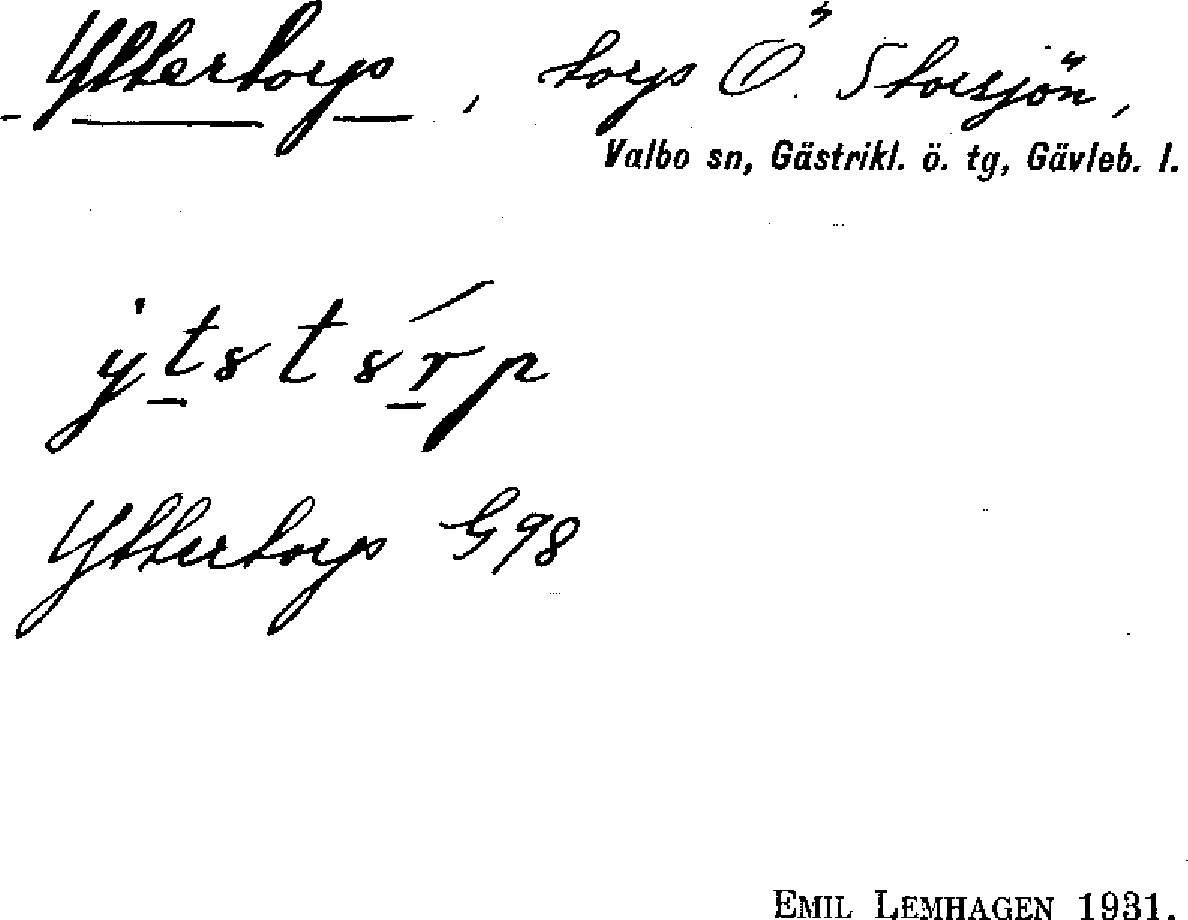 Yttertorp, torp Ö. Storsjön,
Valbo sn, Gästrikl. ö. tg, Gävleb. l.
Yttertorp G98
EMIL LEMHAGEN 1931.